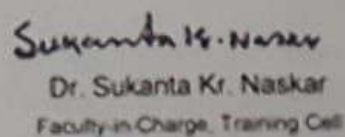 Sukanta Kr. Naskar
Dr. Sukanta Kr. Naskar
Faculty-in-Charge, Training Cell